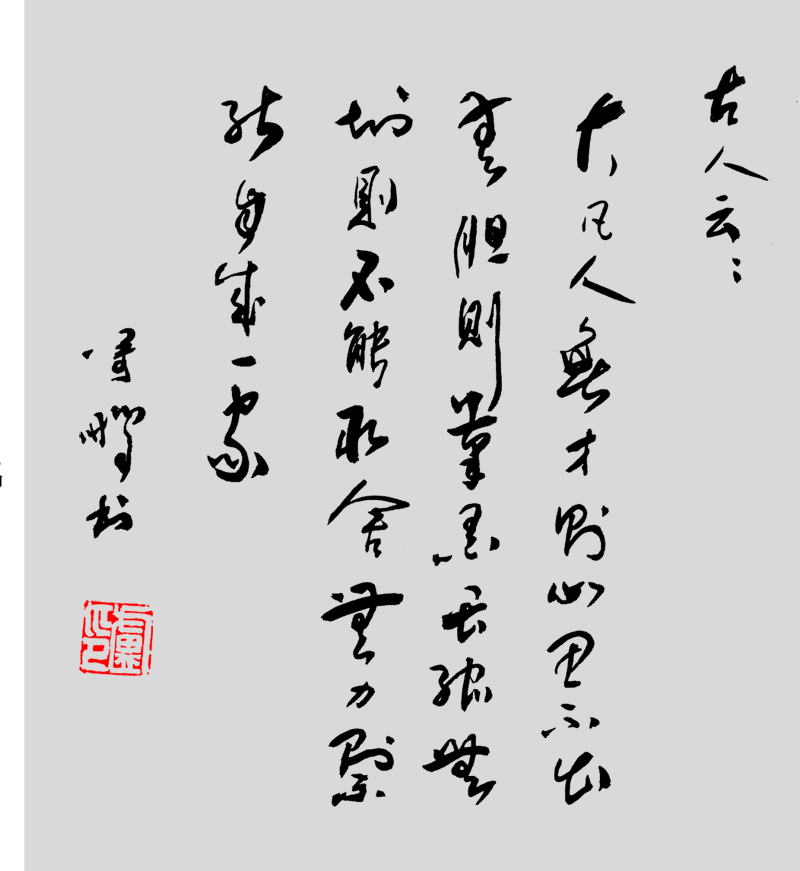 古人云:
大凡人無才則心思不出
無胆則筆墨畏縮無
識則不能取舍無力則不
能自成一家